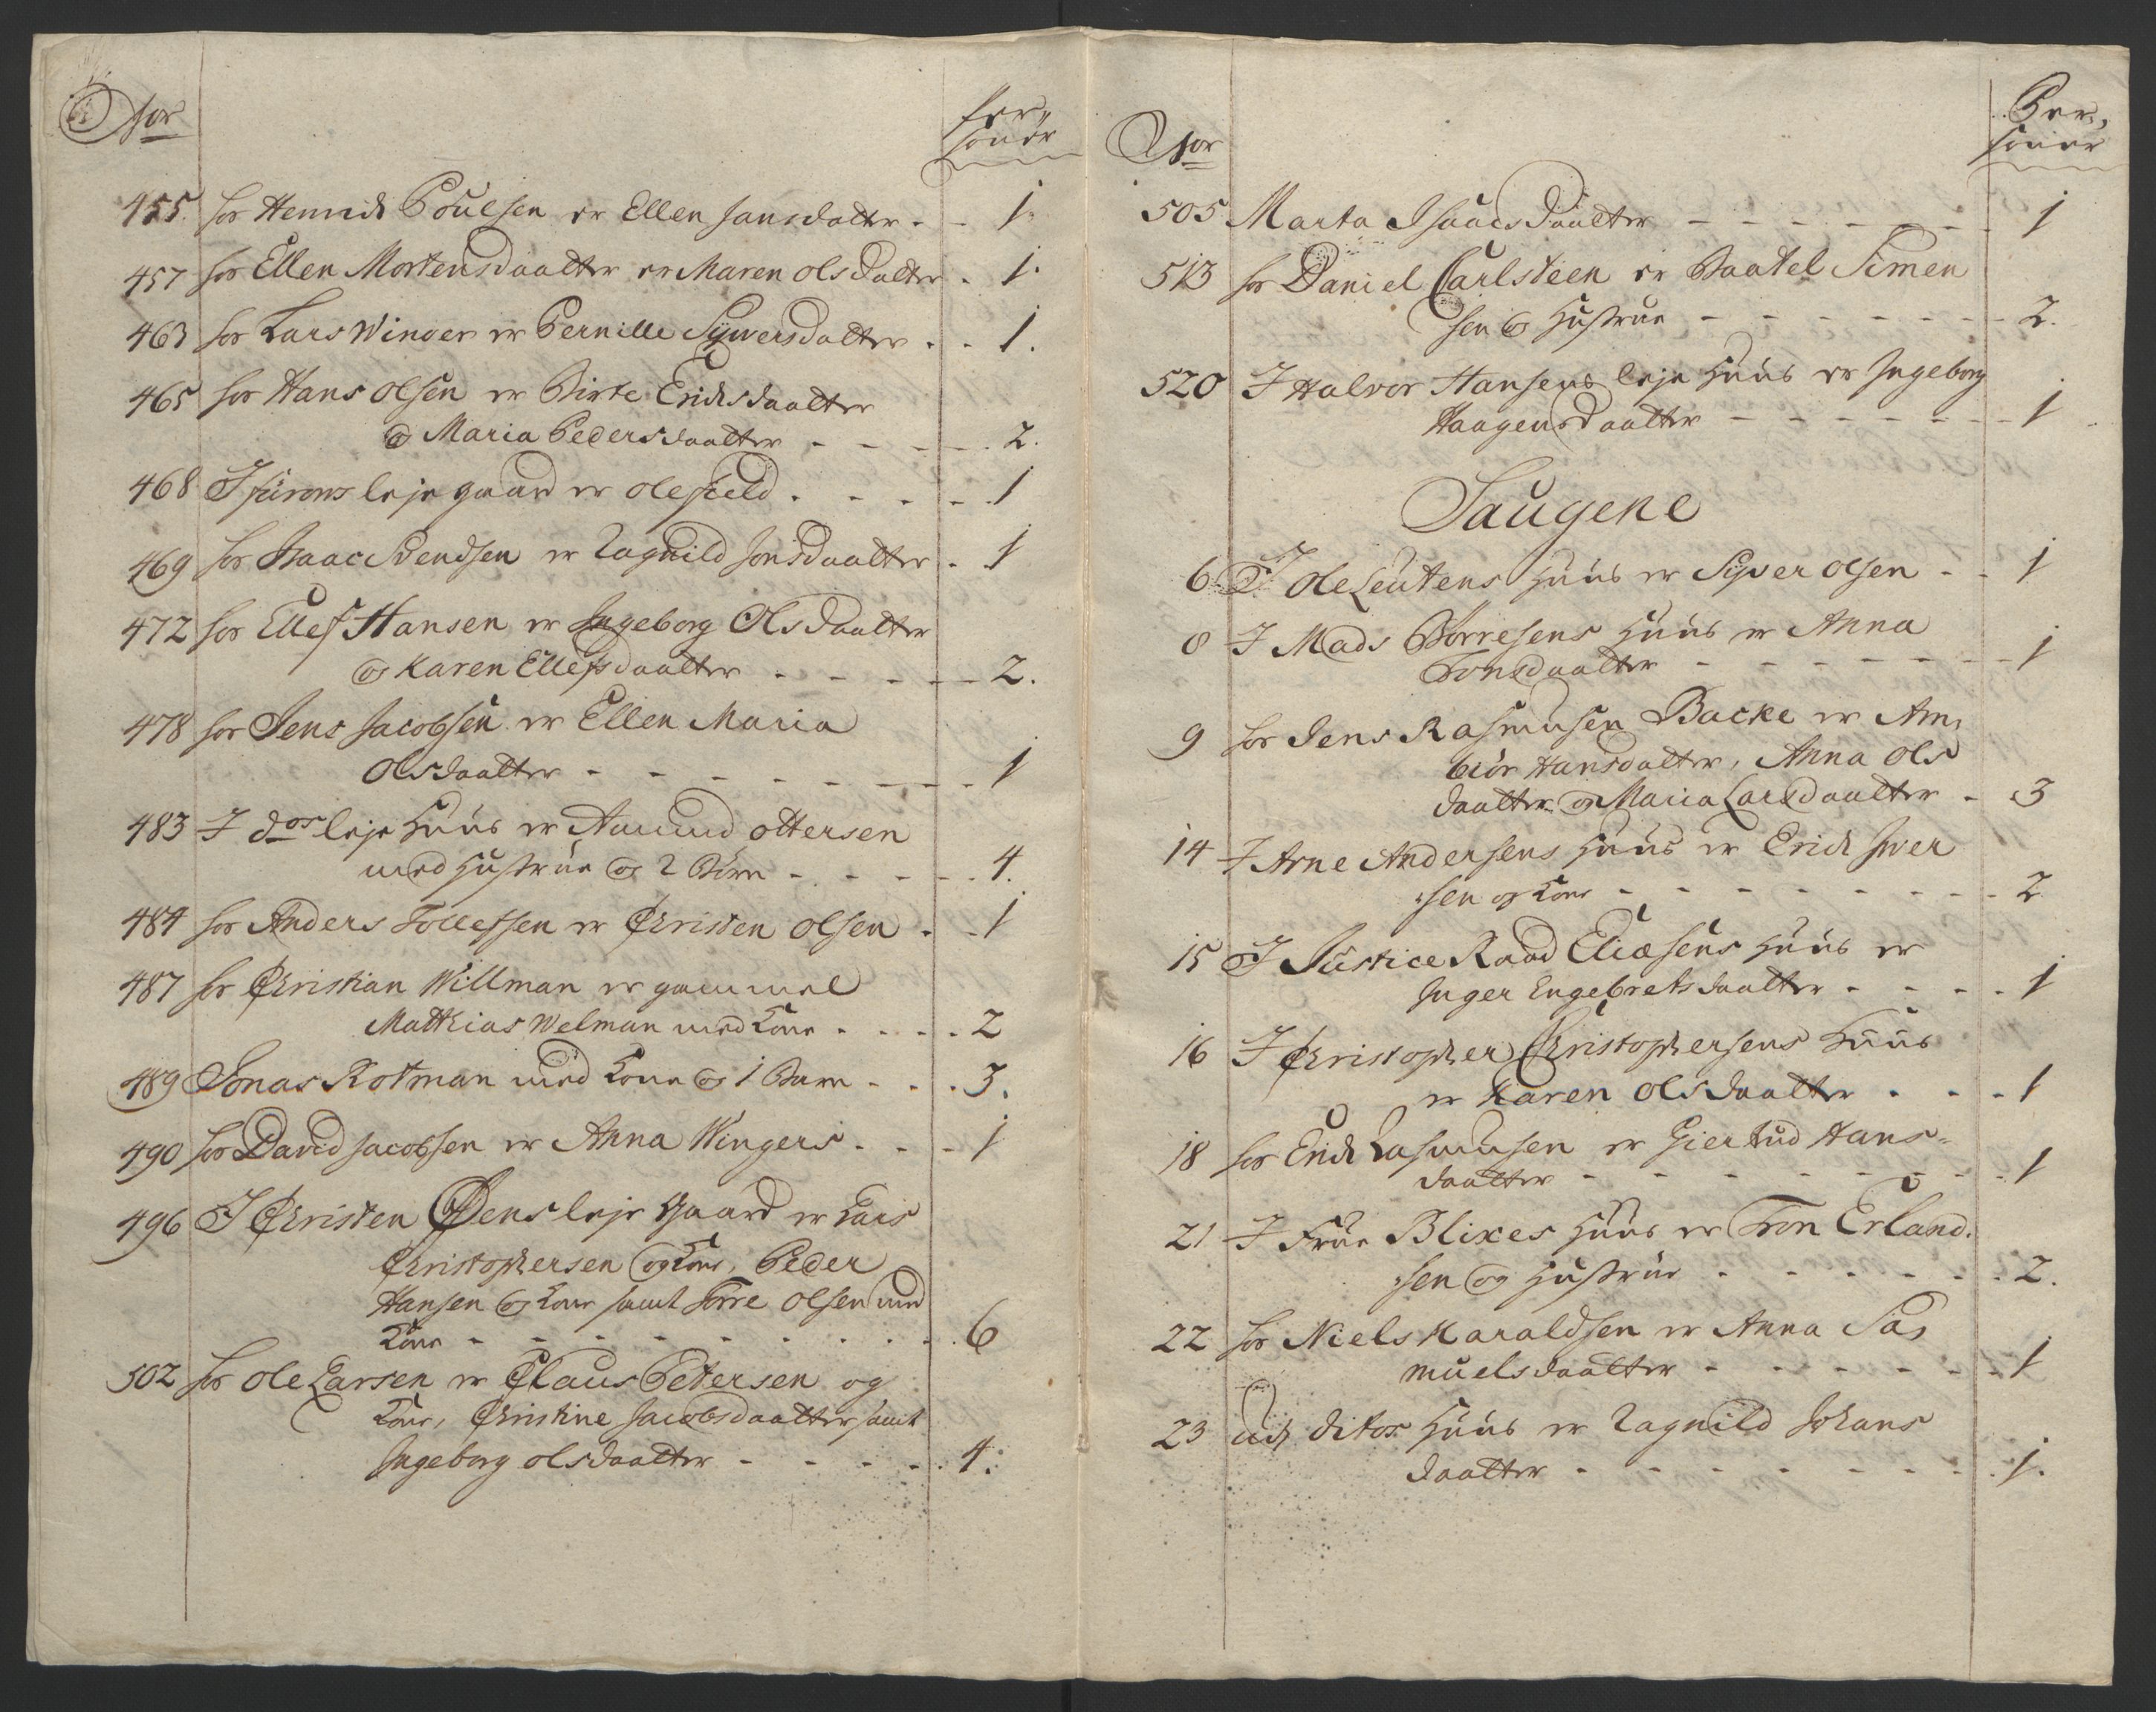 Nor
Per,,
soner
455. hos Henrich Poulsen er Ellen Jansdatter - - 1.
457 hos Ellen Mortensdaatter er Maren Olsdatter - 1.
463 hos Lars Winger er Pernille Syversdatter - - 1.
465 hos Hans Olsen er Birte Erichsdaatter
og Maria Pedersdaatter - - - - 2.
468 I leje gaard er Ole - - - - 1
469 hos Isaac Svendsen er Ragnild Jonsdaatter - 1
472 hos Ellef Hansen er Ingeborg Olsdaatter
og Karen Ellefsdaatter - - - - 2.
478 hos Jens Jacobsen er Ellen Maria
Olsdaatter - - - - - - - 1
483 I dos leje Huus er Amund Ottersen
med Hustrue og 2 Børn - - - - 4.
484 hos Anders Tollefsen er Christen Olsen - - 1
487 hos Christian Willman er gammel
Mathias Welman med Kone - - - - 2
489 Jonas Rotman med Kone og 1 Barn - - - 3.
490 hos David Jacobsen er Anna Wingers - - - 1
496 I Christen Øens leje Gaard er Lars
Christophersen og Kone, Peder
Hansen og Kone samt Torre Olsen med
Kone - - - - - - - - 6
502 hos Ole Larsen er Claus Petersen og
Kone, Christine Jacobsdaatter samt
Ingeborg Olsdaatter - - - - 4.
Nor
Per,
soner
505 Marta Isaacsdaatter - - - - - - 1
513 hos Daniel Carlsteen er Paatel Simen
sen og Hustrue - - - - - - - 2.
520 I Halvor Hansens leje Huus er Ingeborg
Haagensdaatter - - - - - - 1
Saugene
6. I Ole Leutens Huus er Syver Olsen - - 1
8 I Mads Børresens Huus er Anna
Tonsdaatter - - - - - - - 1
9 hos Jens Rasmusen Backe er Am,
biør Hansdatter, Anna Ols
daatter og Maria Larsdaatter - 3
14 I Arne Andersens Huus er Erich Iver
sen og Kone - - - - - - - - 2
15 I Justice Raad Eliæsens Huus er
Inger Engebretsdaatter - - - - 1
16 I Christopher Christophersens Huus
er Karen Olsdaatter - - - 1
18 hos Erich Rasmusen er Giertrud Hans-
daatter - - - - - - - 1
21 I Frue Blixes Huus er Tron Erland,
sen og Hustrue - - - - - - 2.
22 hos Niels Haraldsen er Anna Sa,
muelsdaatter - - - - - - 1
23 udj ditos Huus er Ragnild Johans
daatter - - - - - - - 1.